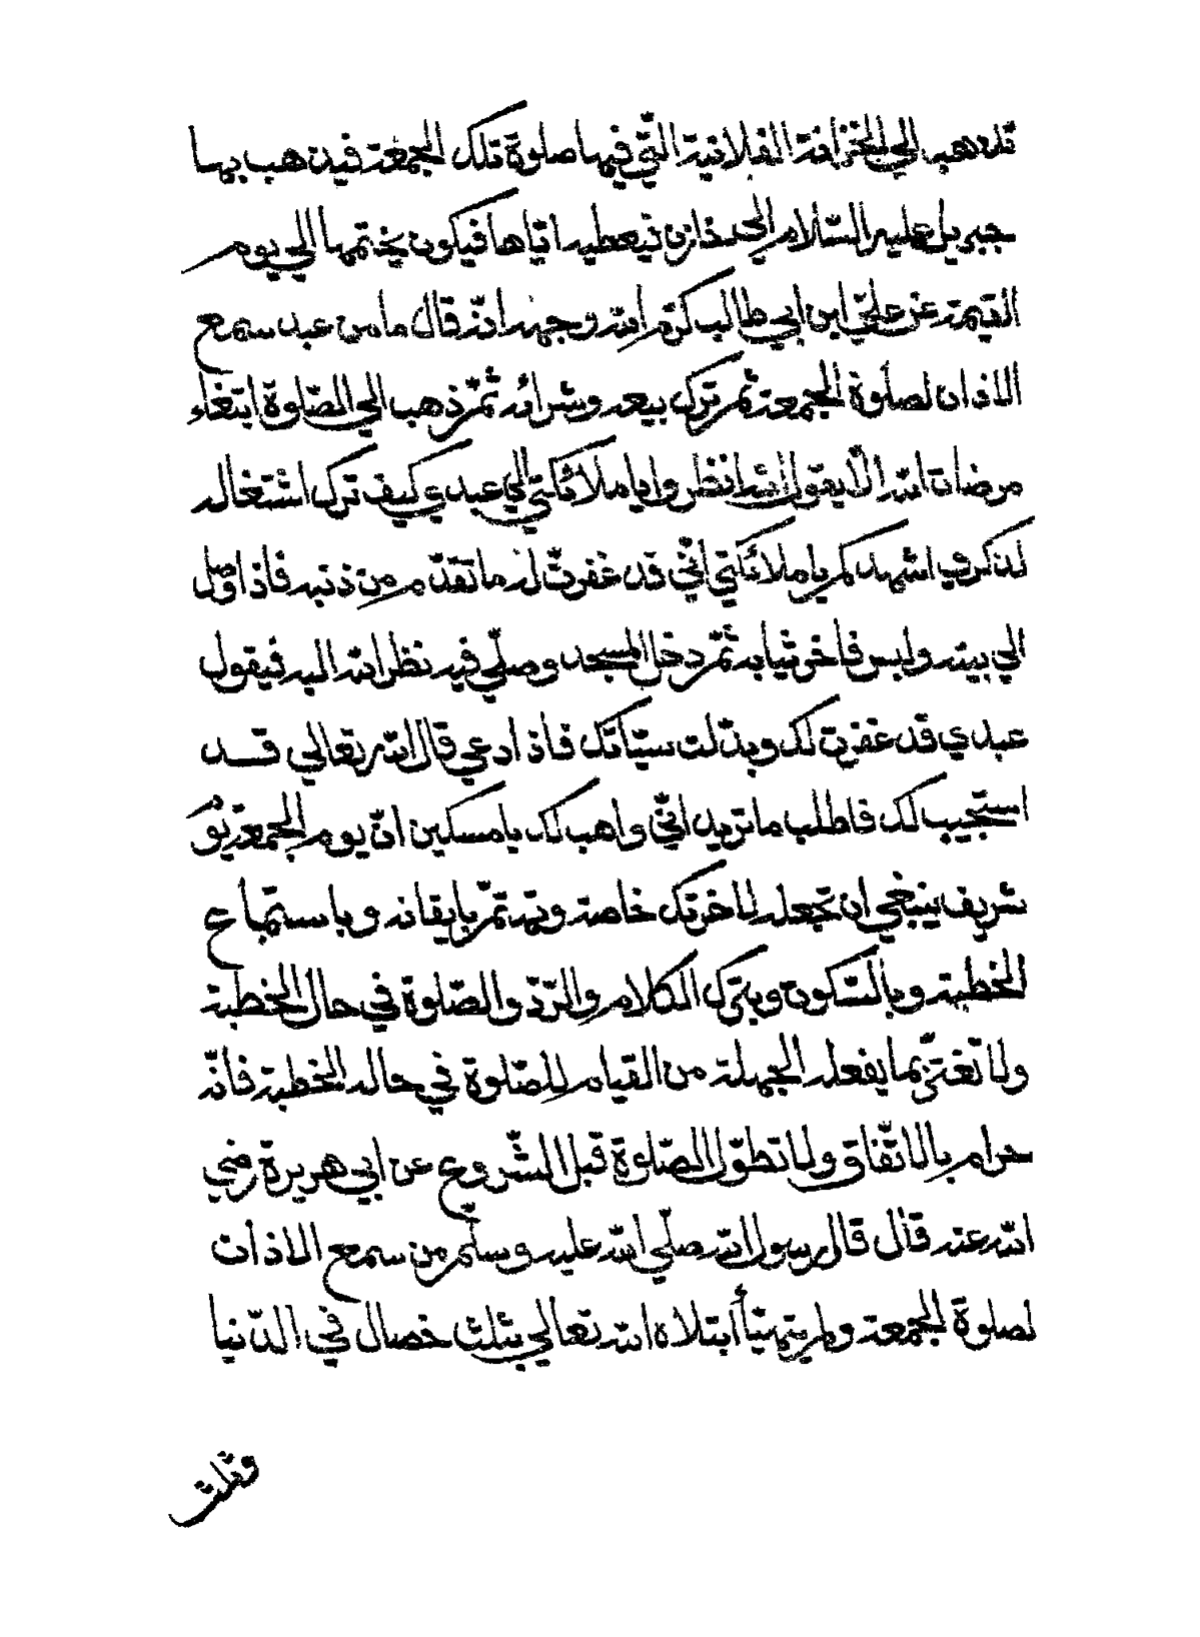 تذهب الي الخزانة الفلانية الّتي فيها صلوة تلك الجمعة فيذهب بها
جبريل عليه السّلام الي خازن فيعطيه ايّاها فيكون يختمها الي يوم
القيمة عن عليّ ابن ابي طالب كرّم الله وجهه انّه قال ما من عبد سمع
الاذان لصلوة الجمعة ثم ترك بيعه وشرائه ثمّ ذهب الي الصّلوة ابتغاء
مرضات الله الّا يقول الله انظروا يا ملائكتي الي عبدي كيف ترك اشتغاله
لذكري اشهدكم يا ملائكتي انّي قد غفرت له ما تقدّم من ذنبه فاذا وصل
الي بيته ولبس فاخر ثيابه ثمّ دخل المسجد وصلّي فيه نظر الله اليه فيقول
عبدي قد غفرت لك وبدّلت سيّاتك فاذا دعي قال الله تعالي قد
استجيب لك فاطلب ما تريد انّي واهب لك يا مسكين انّ يوم الجمعة يوم
شريف ينبغي ان تجعله لاخرتك خاصة وتهتمّ بايقانه وباستماع
الخطبة وبالسّكون وبترك الكلام والرّد والصّلوة في حال الخطبة
ولا تغترّ بما يفعله الجهلة من القيام للصّلوة في حاله الخطبة فانّه
حرام بالاتّفاق ولا تطوّل الصّلوة قبل الشّروع عن ابي هريرة رضي
الله عنه قال قال رسول الله صلّي الله عليه وسلّم من سمع الاذان
لصلوة الجمعة ولم يتهيّأ ابتلاه الله تعالي بثلث خصال في الدّنيا
وثلث